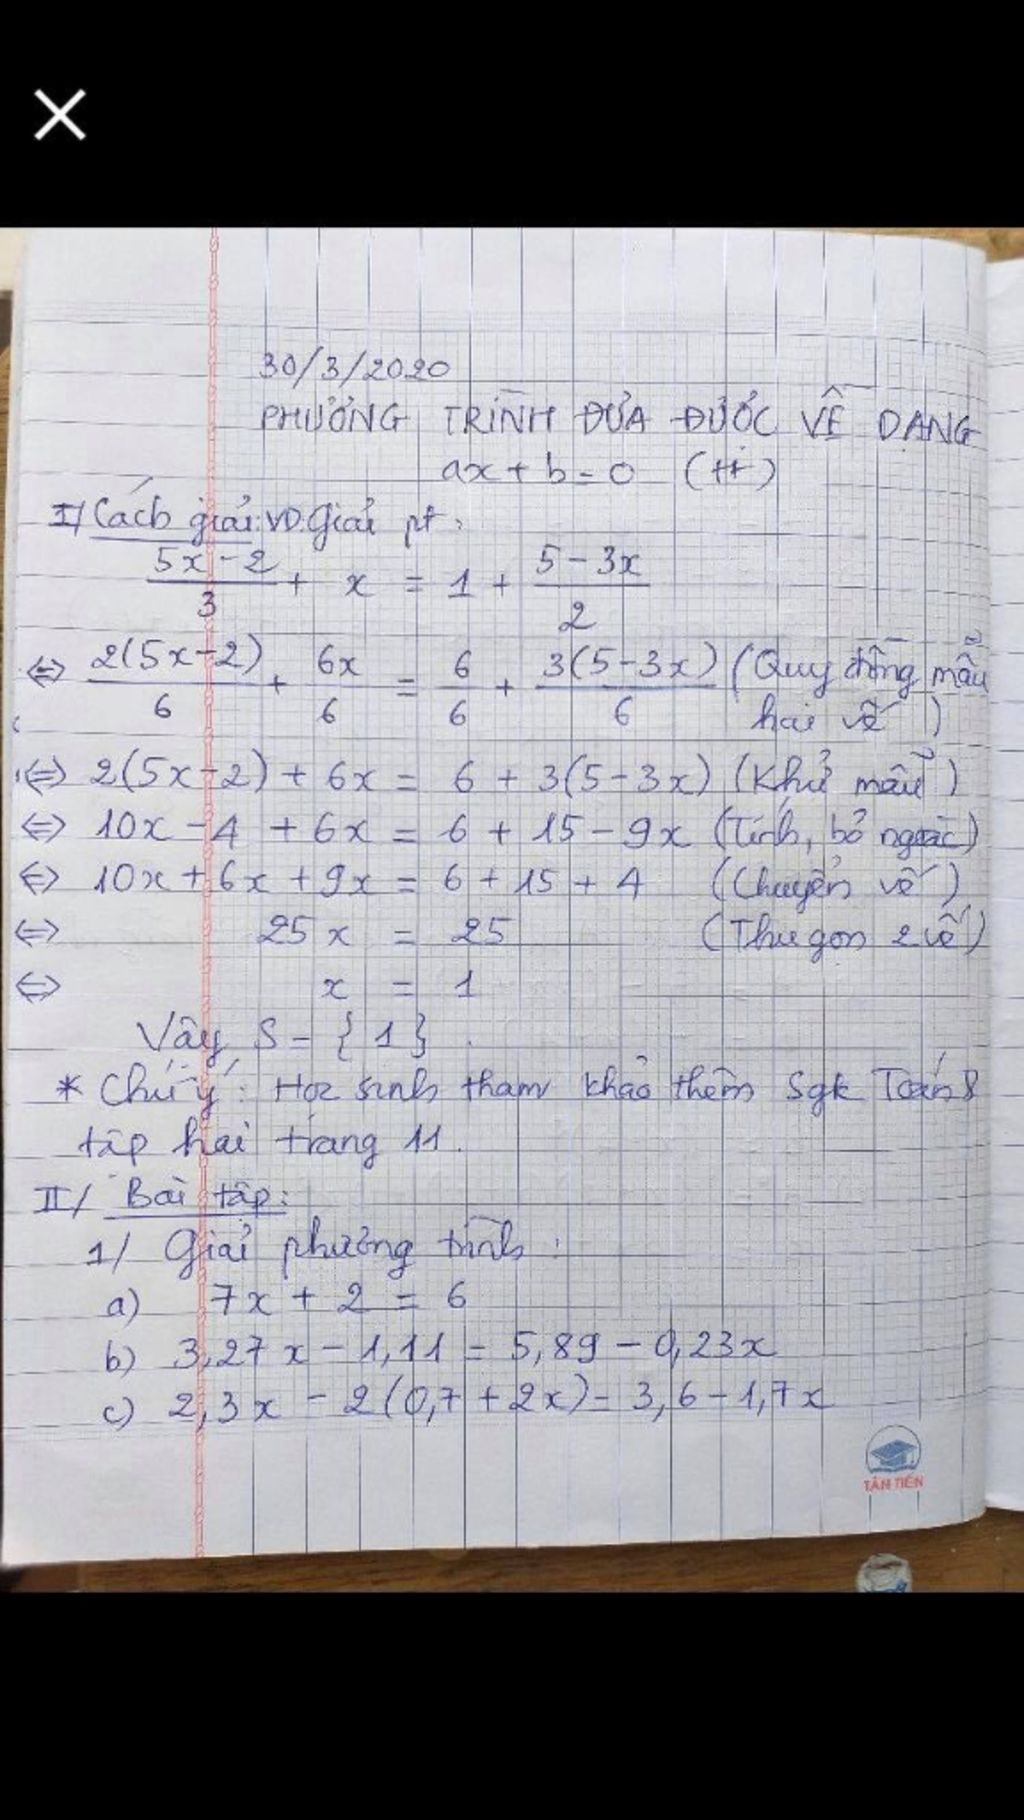 30/3/2020
PHƯƠNG TRÌNH ĐƯA ĐƯỢC VỀ DẠNG
ax + b = 0 (tt)
I/ Cách giải: VD. Giải pt:
(5x - 2)/3 + x = 1 + (5 - 3x)/2
⇔ 2(5x - 2)/6 + 6x/6 = 6/6 + 3(5 - 3x)/6 (Quy đồng mẫu
hai vế)
⇔ 2(5x - 2) + 6x = 6 + 3(5 - 3x) (Khử mẫu)
⇔ 10x - 4 + 6x = 6 + 15 - 9x (Tính, bỏ ngoặc)
⇔ 10x + 6x + 9x = 6 + 15 + 4 (Chuyển vế)
⇔ 25x = 25 (Thu gọn 2 vế)
⇔ x = 1
Vậy S = {1}.
* Chú ý: Học sinh tham khảo thêm Sgk Toán 8
tập hai trang 11.
II/ Bài tập:
1/ Giải phương trình:
a) 7x + 2 = 6
b) 3,27x - 1,11 = 5,89 - 0,23x
c) 2,3x - 2(0,7 + 2x) = 3,6 - 1,7x
TÂN TIẾN